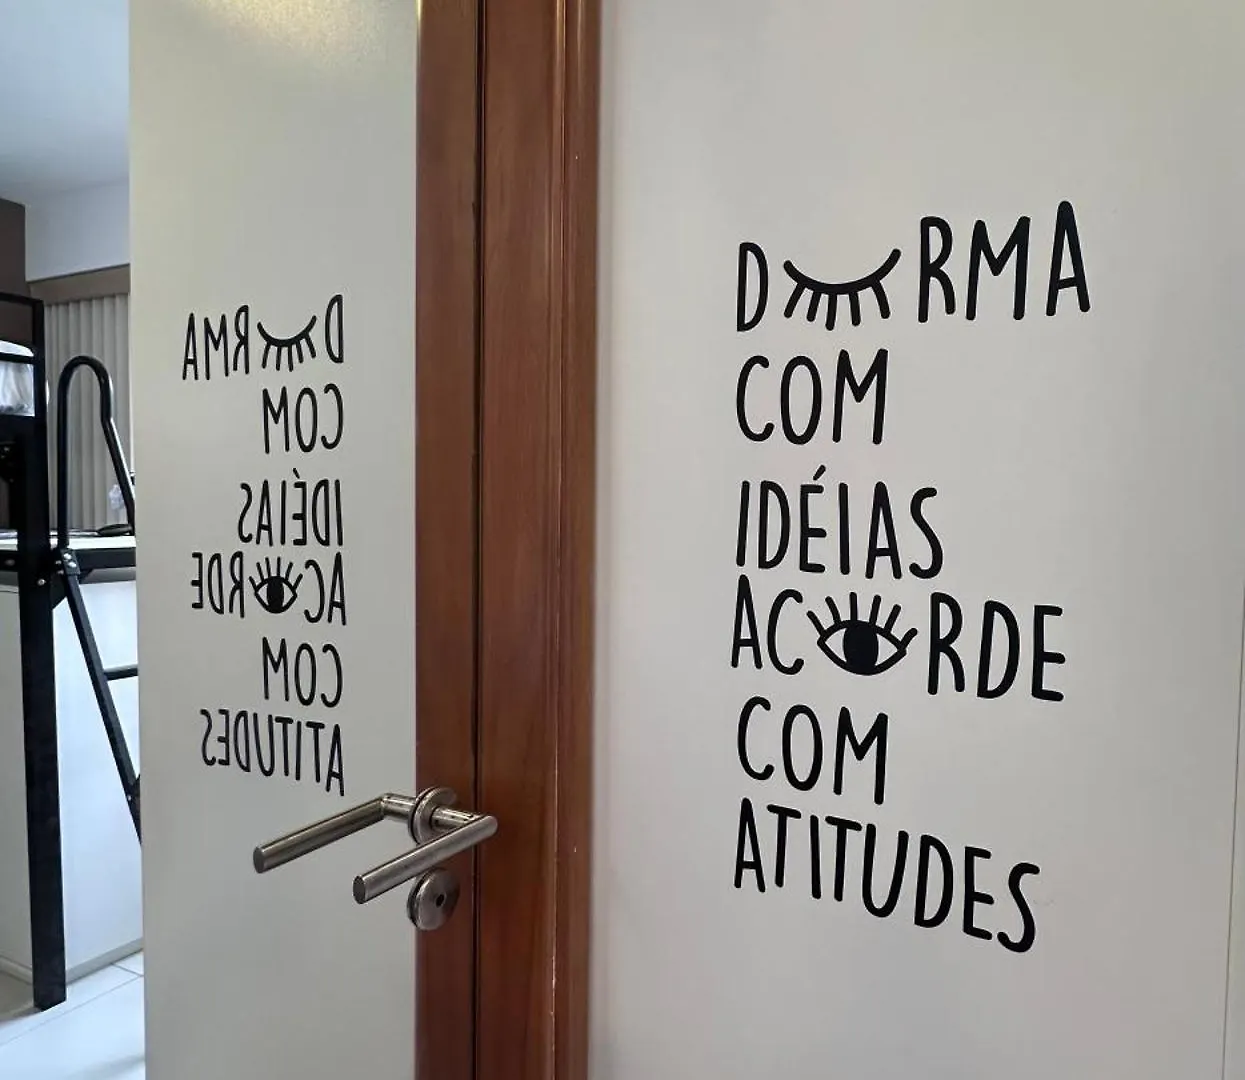 DORMA
COM
IDÉIAS
ACORDE
COM
ATITUDES
DORMA
COM
IDÉIAS
ACORDE
COM
ATITUDES